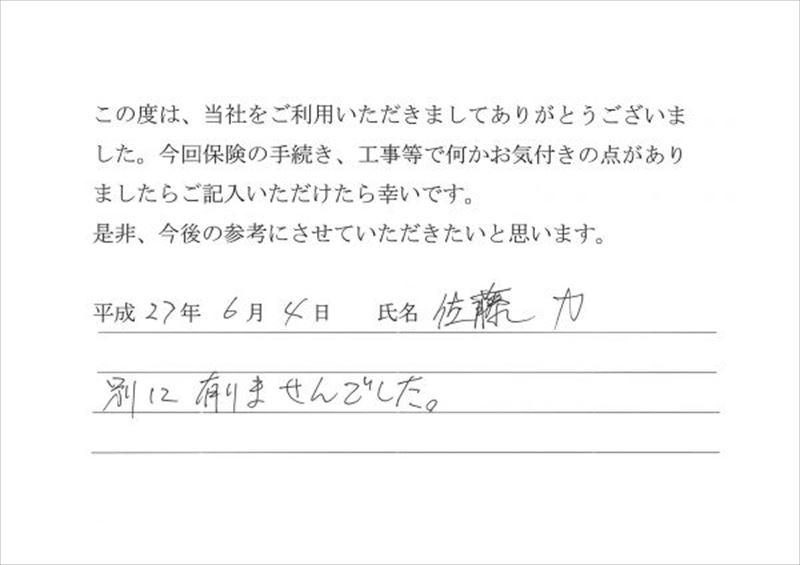 この度は、当社をご利用いただきましてありがとうございま
した。今回保険の手続き、工事等で何かお気付きの点があり
ましたらご記入いただけたら幸いです。
是非、今後の参考にさせていただきたいと思います。
平成 27年 6月 4日 氏名 佐藤 力
別に有りませんでした。